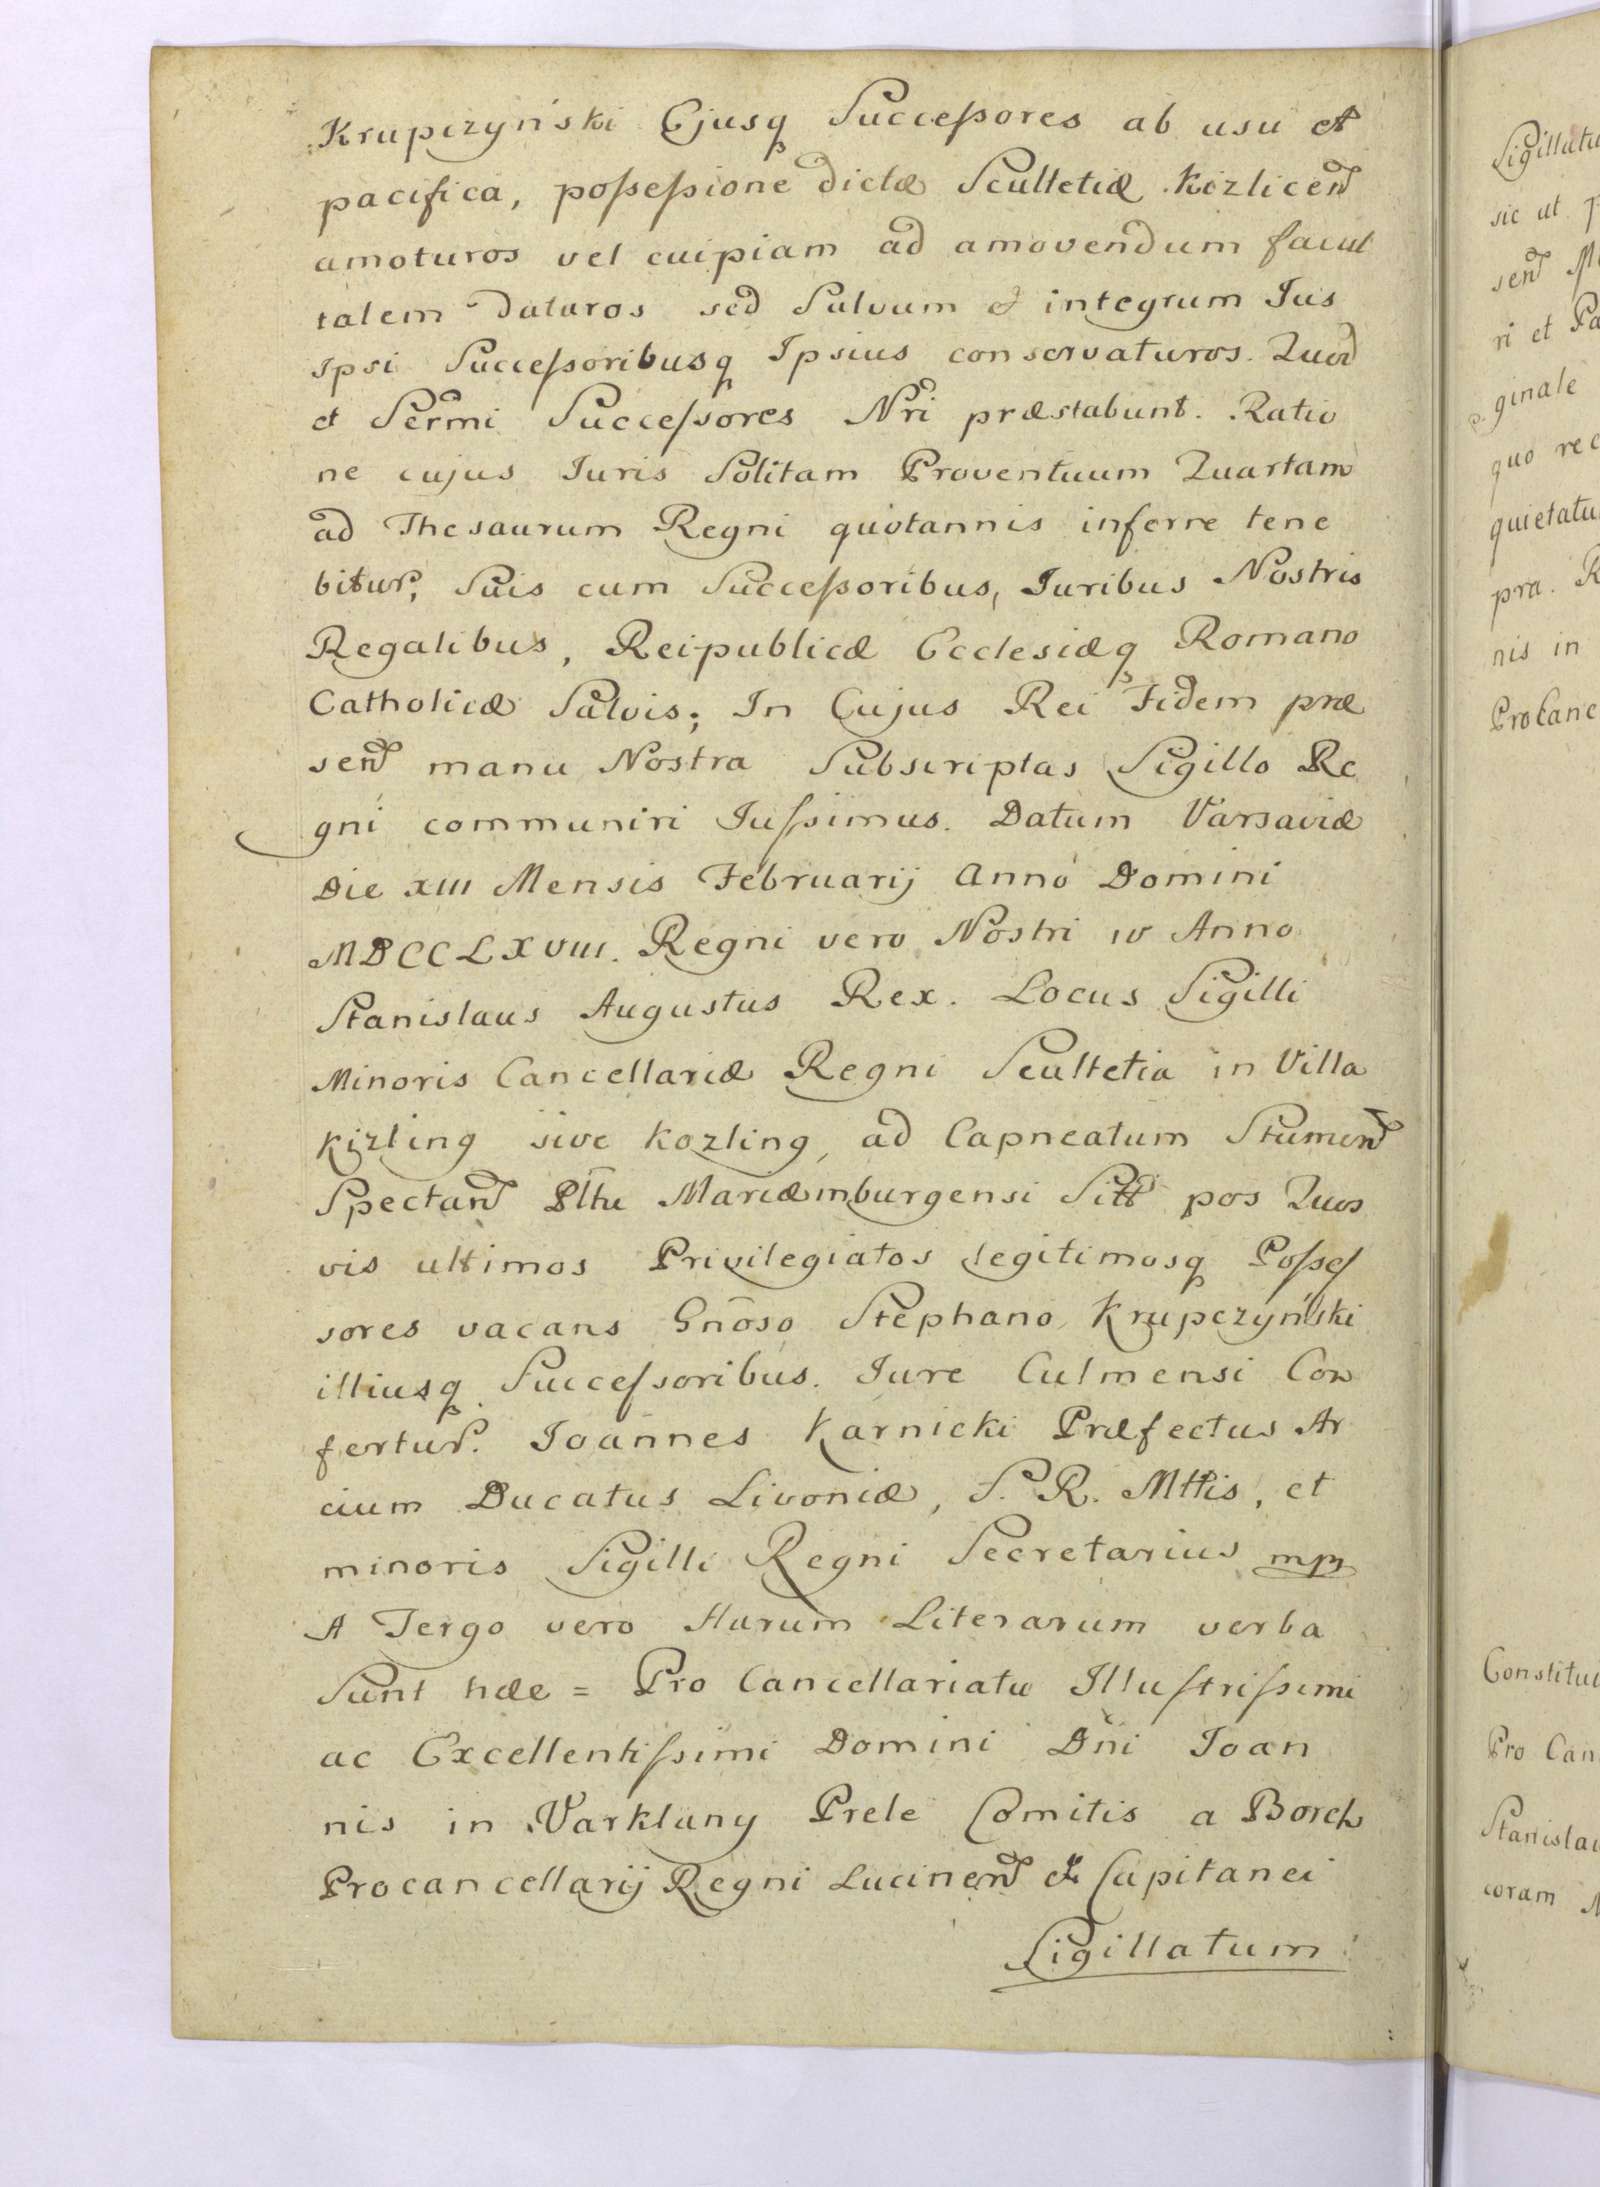 Krupczyński Ejusq Succeſsores ab usu et
pacifica, poſseſsione dictæ Scultetiæ Kozlicen
amoturos vel cuipiam ad amovendum facul
tatem daturos sed Salvum & integrum Jus
Ipsi Succeſsoribusq Ipsius conservaturos. Quod
et Sermi Succeſsores Nri præstabunt. Ratio
ne cujus Juris Solitam Proventuum Quartam
ad Thesaurum Regni quotannis inferre tene
bitur, Suis cum Succeſsoribus, Juribus Nostris
Regalibus, Reipublicæ Ecclesiæq Romano
Catholicæ Salvis; In Cujus Rei Fidem præ
sen manu Nostra Subscriptas Sigillo Re
gni communiri Juſsimus. Datum Varsaviæ
Die XIII Mensis Februarij Anno Domini
MDCCLXVIII. Regni vero Nostri IV Anno
Stanislaus Augustus Rex. Locus Sigilli
Minoris Cancellariæ Regni Scultetia in Villa
Kizling sive Kozling, ad Capneatum Stumen
Spectan Pltu Mariæmburgensi Sitt pos Quos
vis ultimos Privilegiatos legitimosq Poſseſ
sores vacans Gnoso Stephano Krupczyński
illiusq Succeſsoribus. Jure Culmensi Con
fertur. Joannes Karnicki Præfectus Ar
cium Ducatus Livoniæ, S. R. Mttis, et
minoris Sigilli Regni Secretarius mp
A Tergo vero Harum Literarum verba
Sunt hæe = Pro Cancellariatu Illuſtriſsimi
ac Excellentiſsimi Domini Dni Joan
nis in Varklany Prele Comitis a Borch
Procancellarij Regni Lucinen et Capitanei
Sigillatum
Sigillatu
sic ut
sen
ri et Pa
ginale
quo rec
quietatu
pra. R
nis in
ProCanc
Constitui
Pro Can
Stanislau
coram